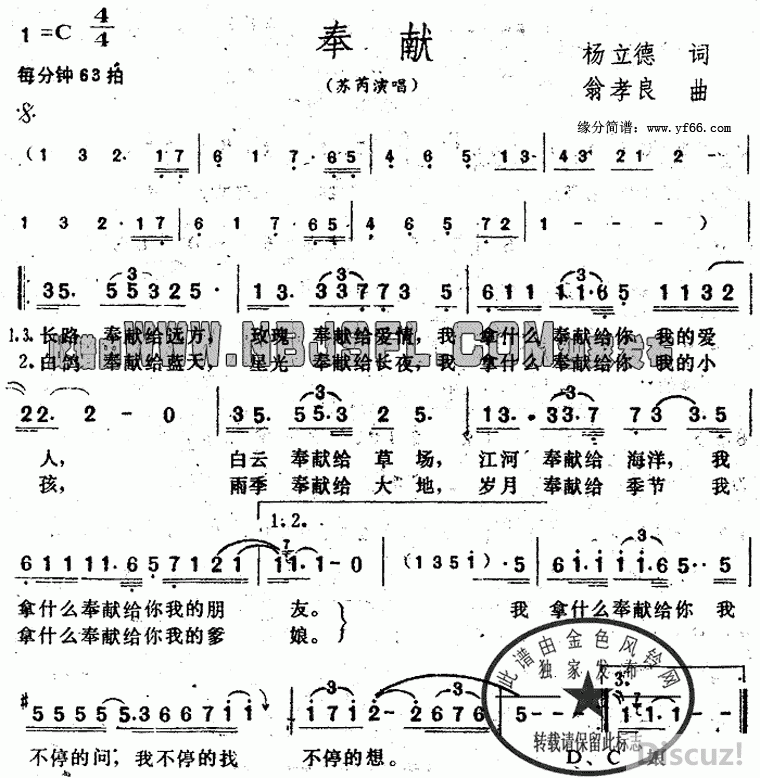 1=C 4/4
奉 献
杨立德 词
每分钟63拍
(苏芮演唱)
翁孝良 曲
缘分简谱：www.yf66.com
(1 3 2. 17 | 6 1 7. 65 | 4 6 5 13 | 43 21 2 - |
1 3 2. 17 | 6 1 7. 65 | 4 6 5 72 | 1 - - - )
35. 55325. | 13. 337735 | 611 11.65 1132
1.3.长路 奉献给远方， 玫瑰 奉献给爱情，我 拿什么奉献给你 我的爱
2.白鸽 奉献给蓝天， 星光 奉献给长夜，我 拿什么奉献给你 我的小
22. 2 - 0 | 35. 55.3 2 5. | 13. 33.7 73 3.5
人， 白云 奉献给 草场， 江河 奉献给 海洋，我
孩， 雨季 奉献给 大地， 岁月 奉献给 季节 我
1.2.
611 11.65 7121 | 11.1-0 | (1351).5 | 61.1 11.65..5
拿什么奉献给你我的朋 友。 我 拿什么奉献给你 我
拿什么奉献给你我的爹 娘。
此谱由金色风铃网
独家发布
3.
5555 55.3 66711 | 171 2-2676 | 5--- | 11.1-
不停的问，我不停的找 不停的想。
转载请保留此标志
D、C
Discuz!